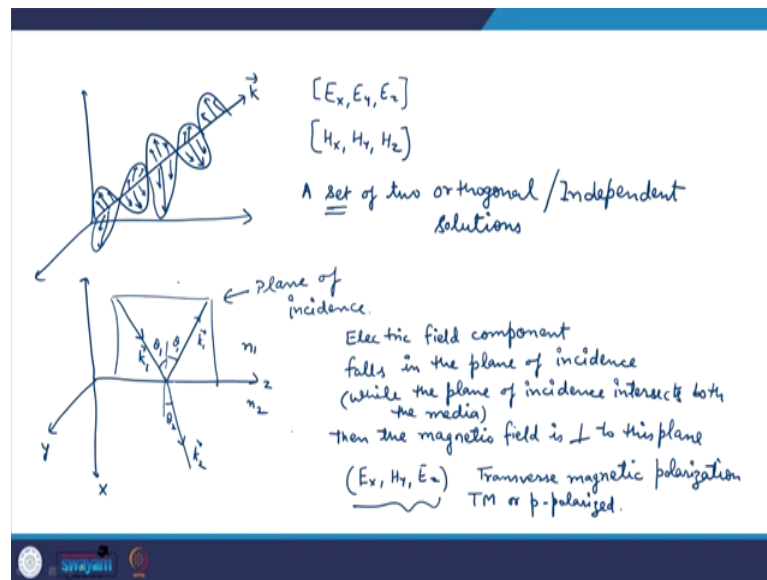 k
[Ex, Ey, Ez]
[Hx, Hy, Hz]
A set of two orthogonal/Independent
solutions
Plane of
incidence.
θ1 θ1
k1 k1 n1
z
n2
θ2
k2
y
x
Electric field component
falls in the plane of incidence
(while the plane of incidence intersects both
the media)
then the magnetic field is ⊥ to this plane
(Ex, Hy, Ez) Transverse magnetic polarization
TM or p-polarized.
swayam